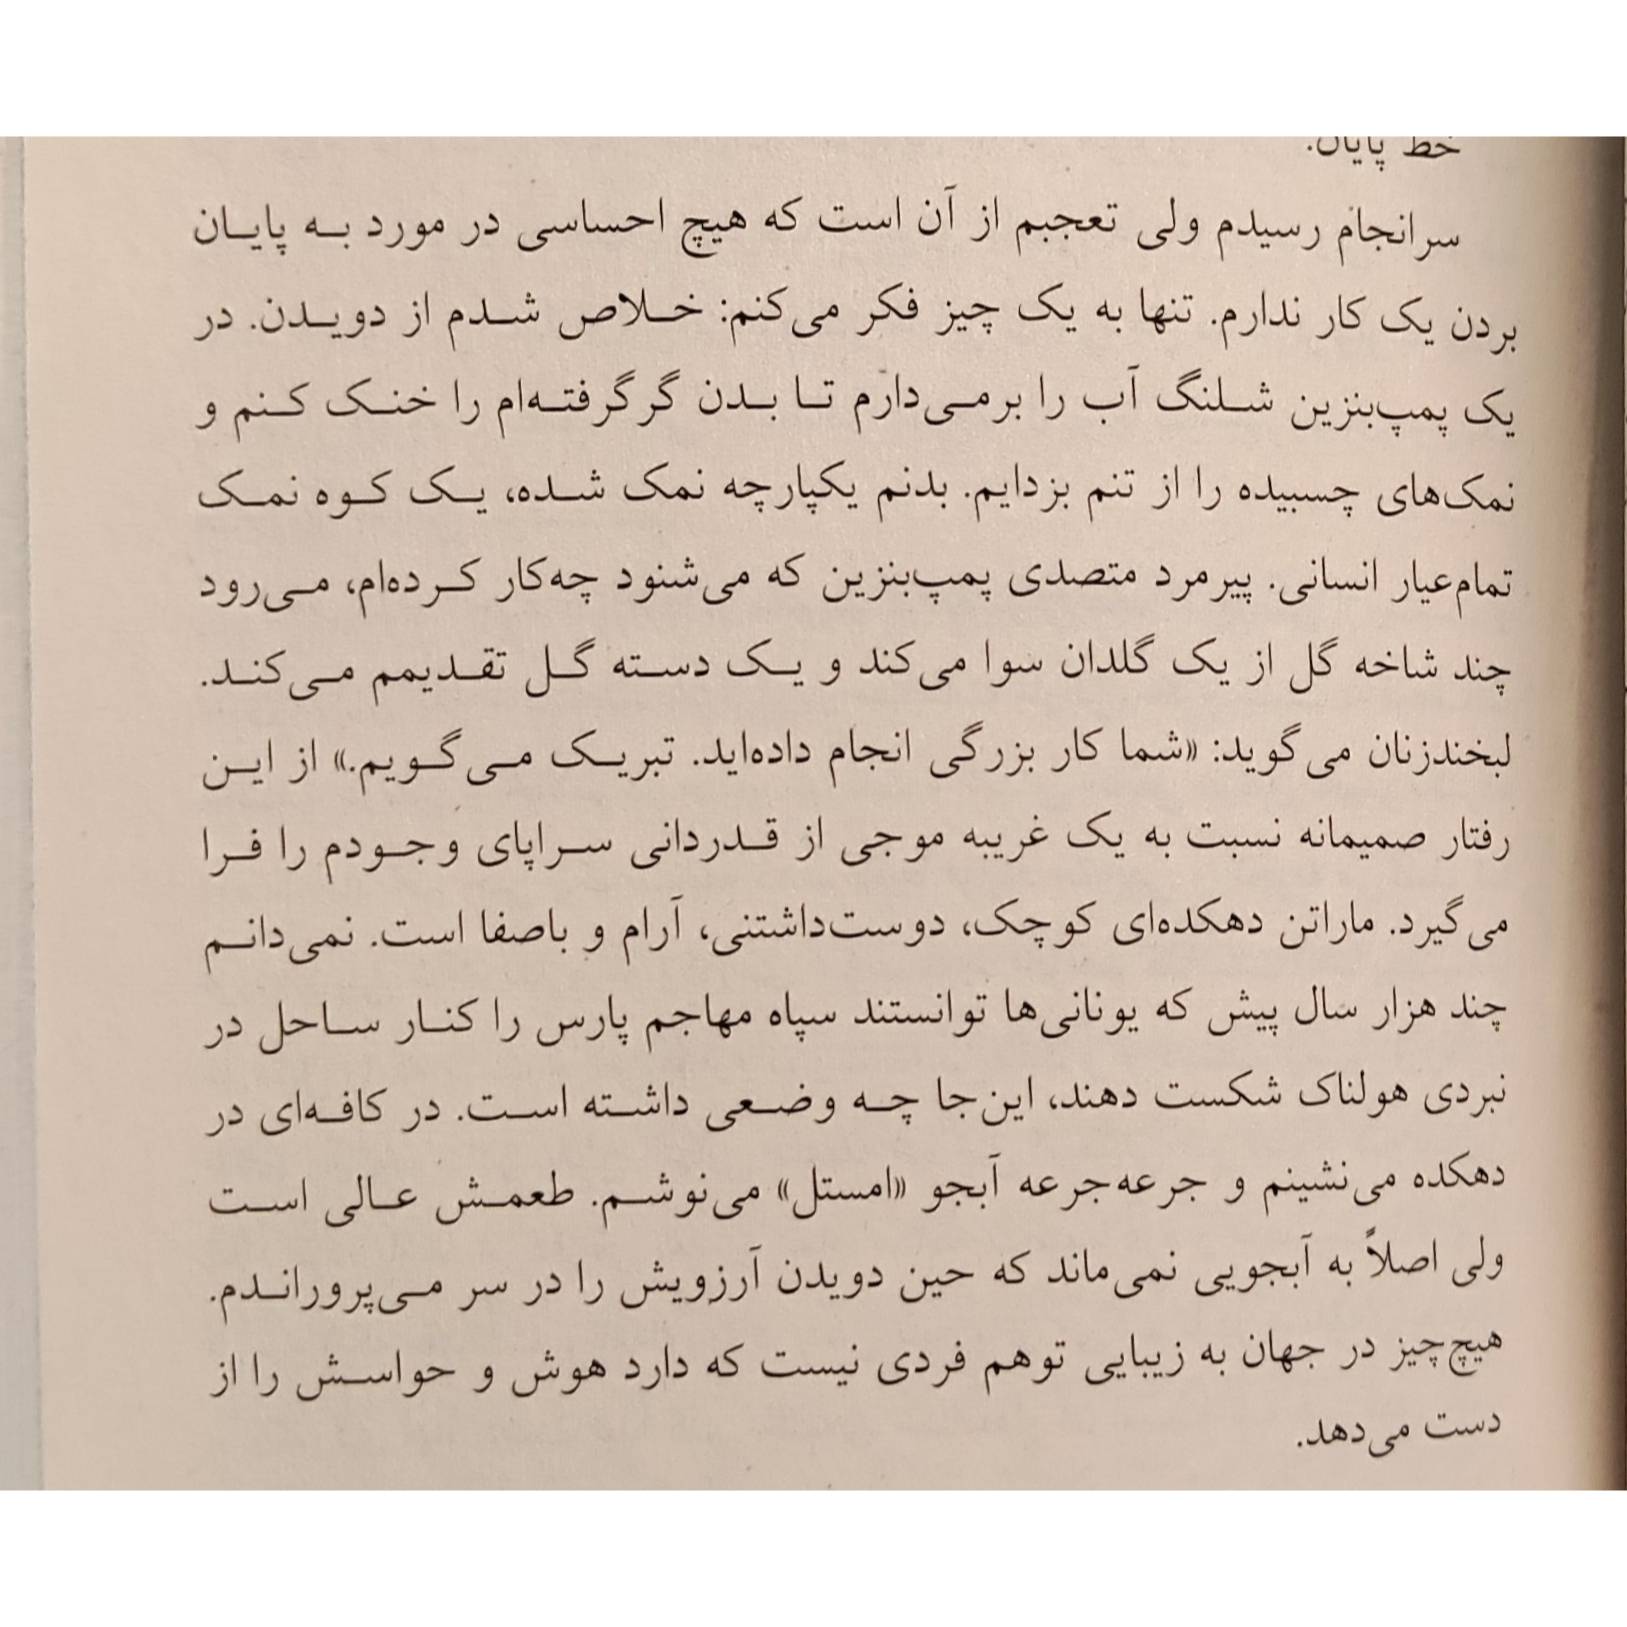 خط پایان.
سرانجام رسیدم ولی تعجبم از آن است که هیچ احساسی در مورد به پایان
بردن یک کار ندارم. تنها به یک چیز فکر می‌کنم: خلاص شدم از دویدن. در
یک پمپ‌بنزین شلنگ آب را برمی‌دارم تا بدن گرگرفته‌ام را خنک کنم و
نمک‌های چسبیده را از تنم بزدایم. بدنم یکپارچه نمک شده، یک کوه نمک
تمام‌عیار انسانی. پیرمرد متصدی پمپ‌بنزین که می‌شنود چه‌کار کرده‌ام، می‌رود
چند شاخه گل از یک گلدان سوا می‌کند و یک دسته گل تقدیمم می‌کند.
لبخندزنان می‌گوید: «شما کار بزرگی انجام داده‌اید. تبریک می‌گویم.» از این
رفتار صمیمانه نسبت به یک غریبه موجی از قدردانی سراپای وجودم را فرا
می‌گیرد. ماراتن دهکده‌ای کوچک، دوست‌داشتنی، آرام و باصفا است. نمی‌دانم
چند هزار سال پیش که یونانی‌ها توانستند سپاه مهاجم پارس را کنار ساحل در
نبردی هولناک شکست دهند، این‌جا چه وضعی داشته است. در کافه‌ای در
دهکده می‌نشینم و جرعه‌جرعه آبجو «امستل» می‌نوشم. طعمش عالی است
ولی اصلاً به آبجویی نمی‌ماند که حین دویدن آرزویش را در سر می‌پروراندم.
هیچ‌چیز در جهان به زیبایی توهم فردی نیست که دارد هوش و حواسش را از
دست می‌دهد.